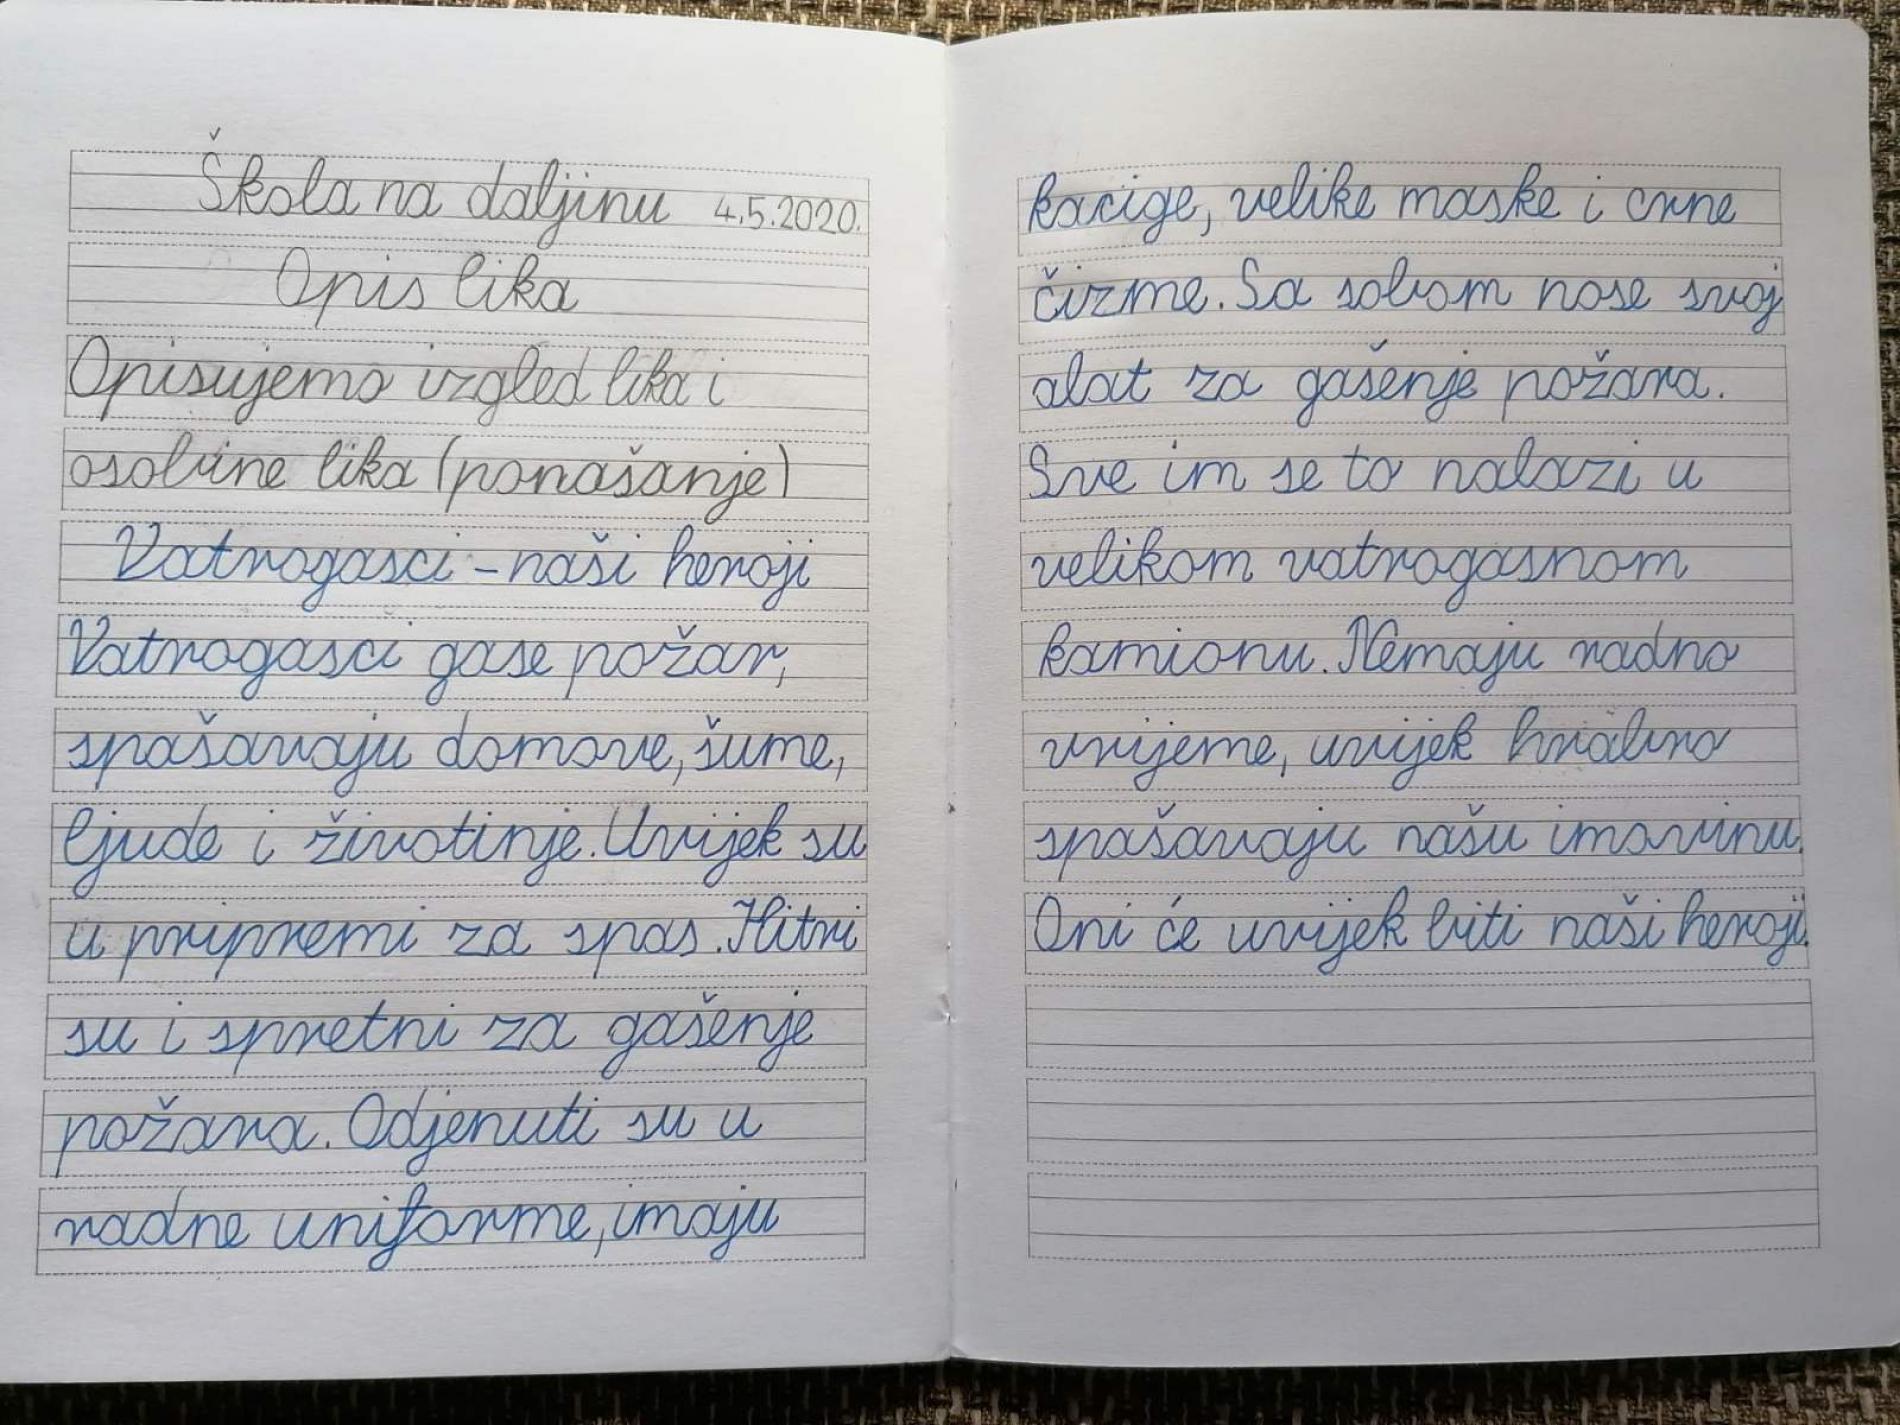 Škola na daljinu 4.5.2020.
Opis lika
Opisujemo izgled lika i
osobine lika (ponašanje)
Vatrogasci - naši heroji
Vatrogasci gase požar,
spašavaju domove, šume,
ljude i životinje. Uvijek su
u pripremi za spas. Hitri
su i spretni za gašenje
požara. Odjenuti su u
radne uniforme, imaju
kacige, velike maske i crne
čizme. Sa sobom nose svoj
alat za gašenje požara.
Sve im se to nalazi u
velikom vatrogasnom
kamionu. Nemaju radno
vrijeme, uvijek hrabro
spašavaju našu imovinu.
Oni će uvijek biti naši heroji.